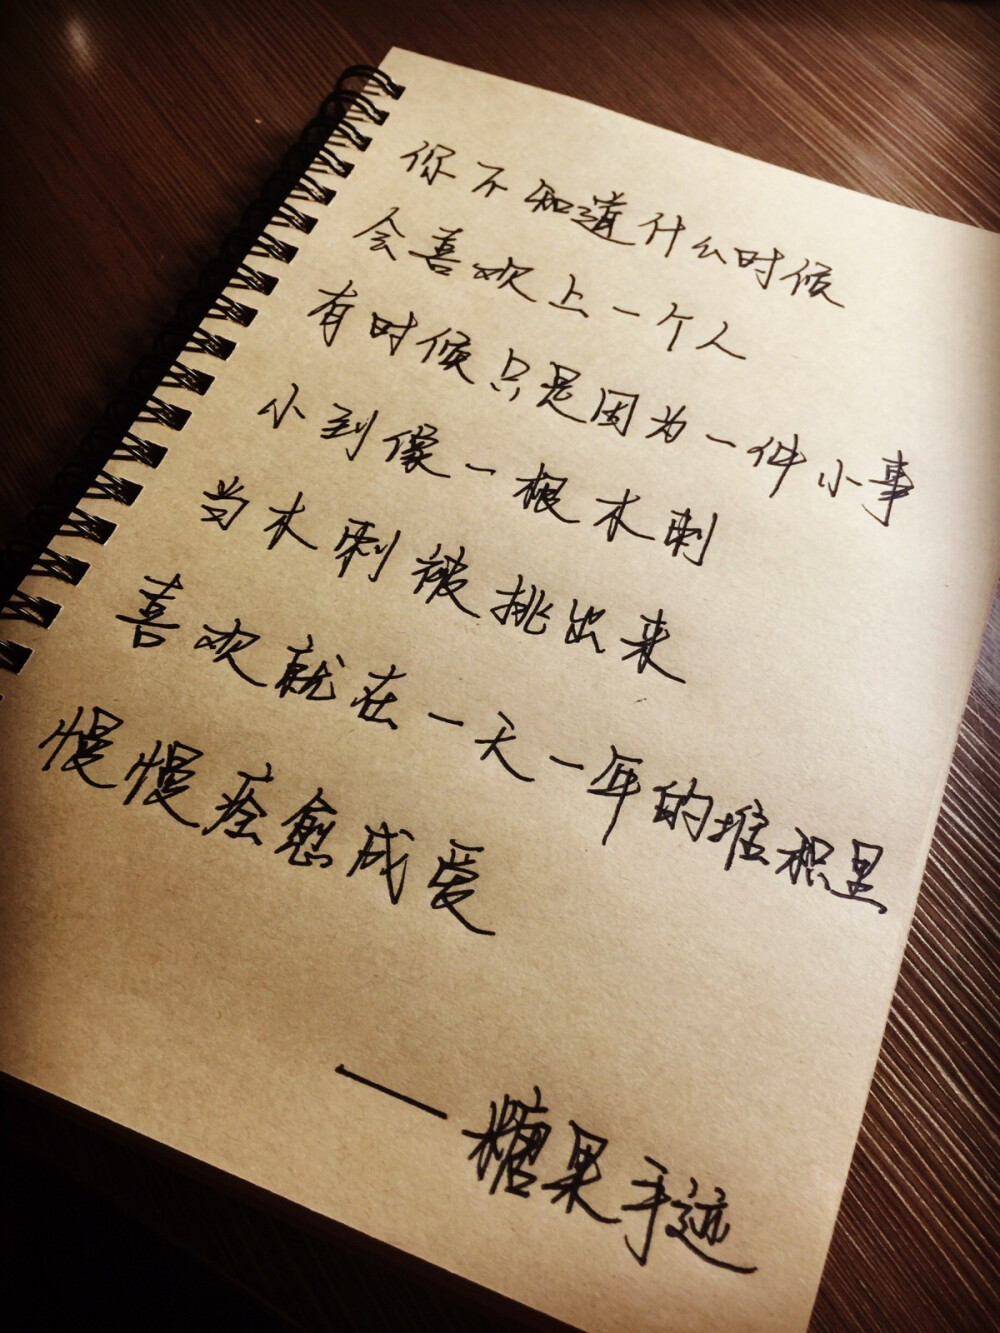 你不知道什么时候
会喜欢上一个人
有时候只是因为一件小事
小到像一根木刺
当木刺被挑出来
喜欢就在一天一年的堆积里
慢慢痊愈成爱
——糖果手迹